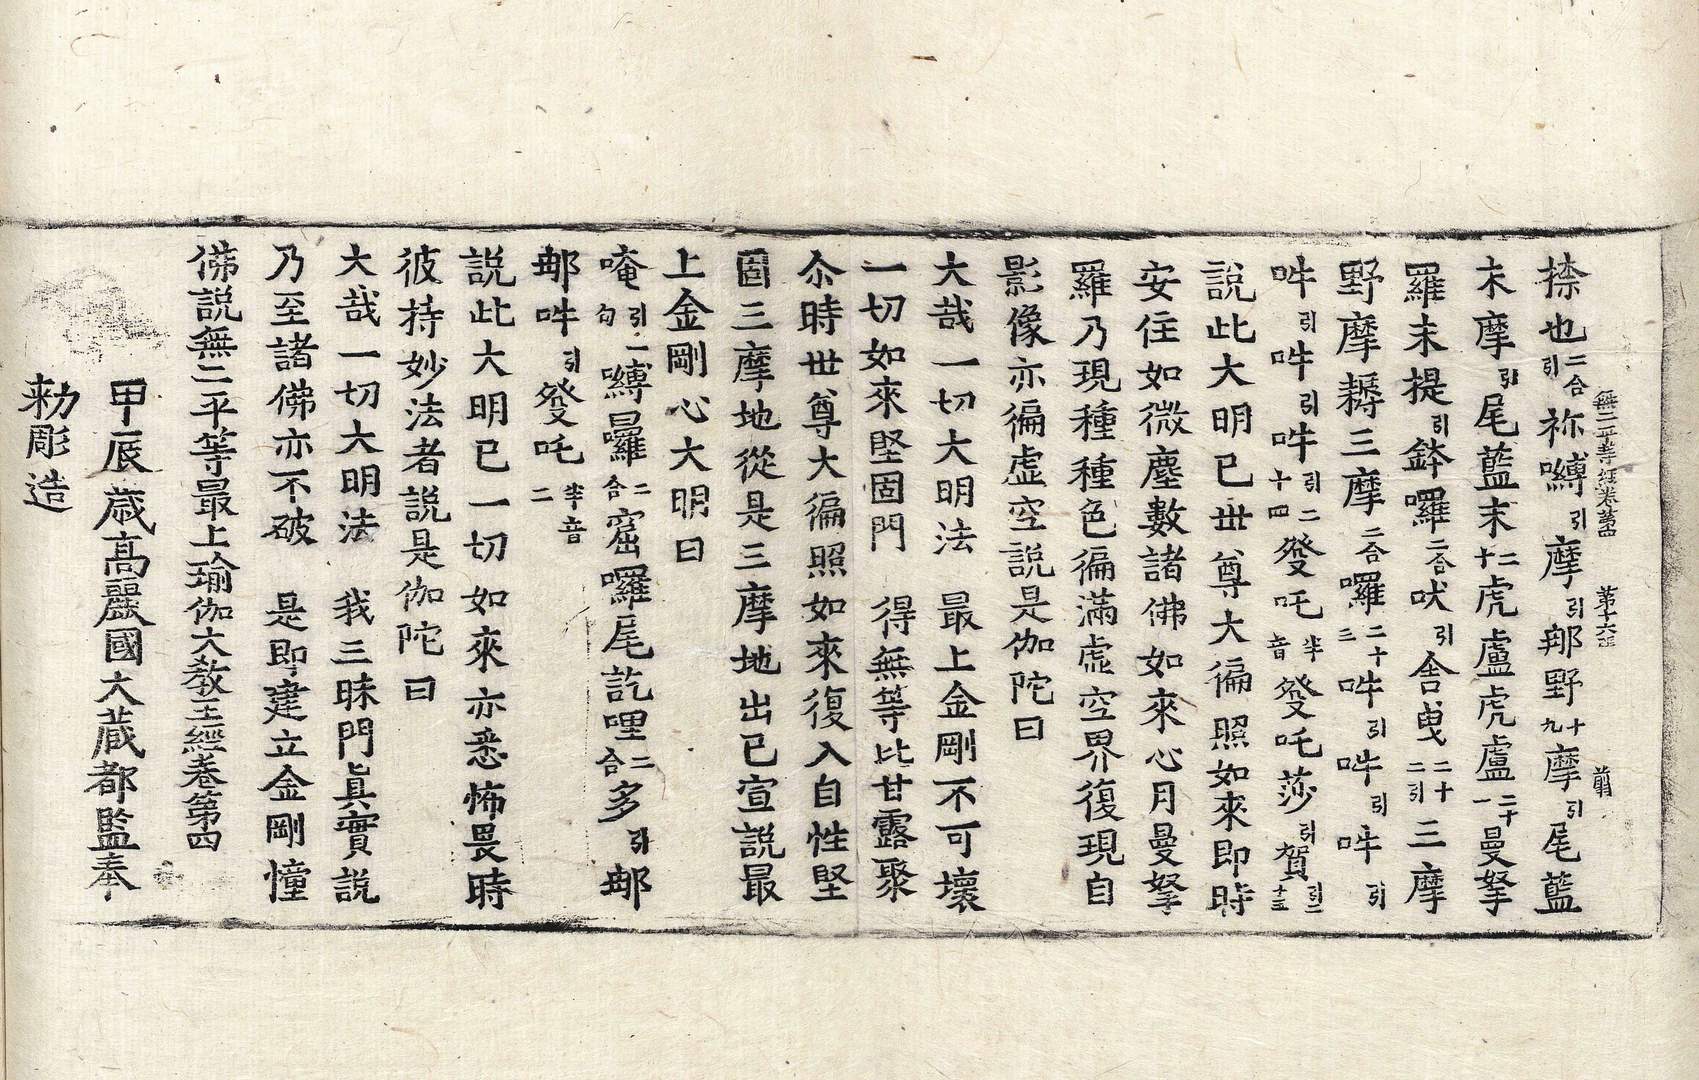 無二平等經卷第四 第十六張 翦
捺也二合引祢嚩引摩引那野十九摩引尾藍
末摩引尾藍末二十虎盧虎盧二十一曼拏
羅末提引鉢囉二合吠引舍曳二十二引三摩
野摩耨三摩二合囉二十三吽引吽引吽引
吽引吽引吽引二十四發吒半音發吒莎引賀引二十五
說此大明已世尊大徧照如來即時
安住如微塵數諸佛如來心月曼拏
羅乃現種種色徧滿虛空界復現自
影像亦徧虛空說是伽陀曰
大哉一切大明法 最上金剛不可壞
一切如來堅固門 得無等比甘露聚
尒時世尊大徧照如來復入自性堅
固三摩地從是三摩地出已宣說最
上金剛心大明曰
唵引一句嚩曩二合窟囉尾訖哩二合多引郍
郍吽引發吒半音二
說此大明已一切如來亦悉怖畏時
彼持妙法者說是伽陀曰
大哉一切大明法 我三昧門眞實說
乃至諸佛亦不破 是即建立金剛幢
佛說無二平等最上瑜伽大教王經卷第四
甲辰歲高麗國大藏都監奉
勅彫造